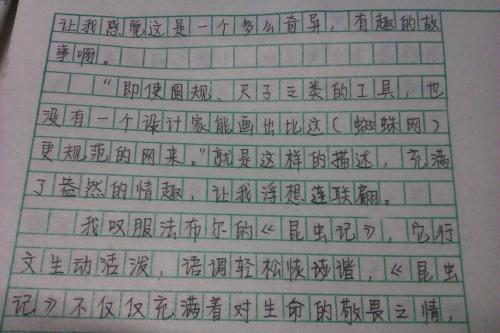 让我感觉这是一个多么奇异，有趣的故
事啊。
“即使圆规、尺子之类的工具，也
没有一个设计家能画出比这（蜘蛛网）
更规范的网来。”就是这样的描述，充满
了盎然的情趣，让我浮想连联翩。
我叹服法布尔的《昆虫记》，它行
文生动活泼，语调轻松恢谐，《昆虫
记》不仅仅充满着对生命的敬畏之情，